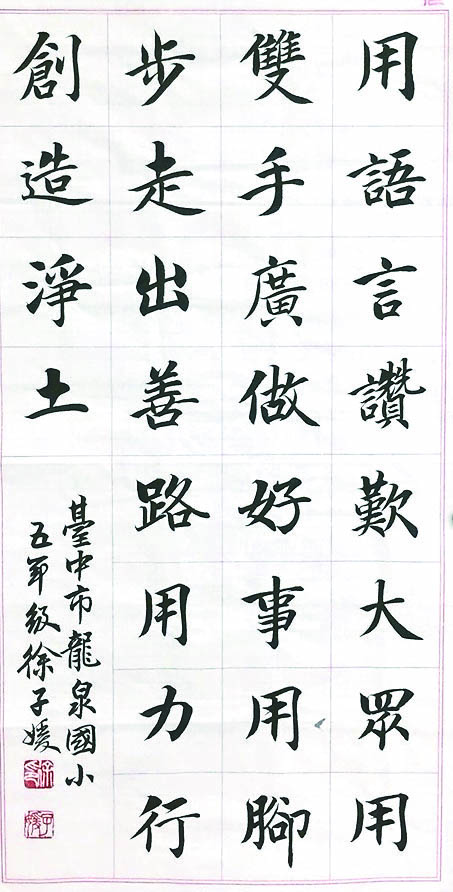 用語言讚歎大眾用
雙手廣做好事用腳
步走出善路用力行
創造淨土
臺中市龍泉國小
五年級徐子媛